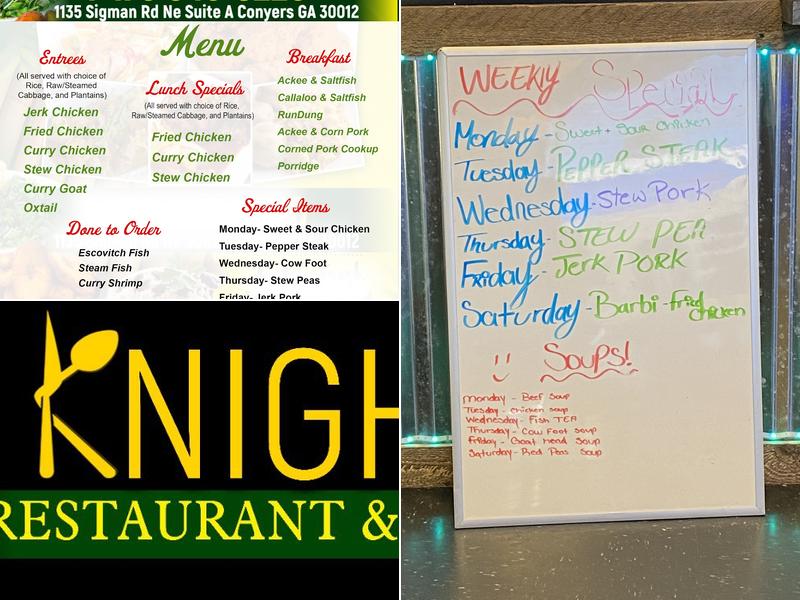 1135 Sigman Rd Ne Suite A Conyers GA 30012
Menu
Entrees
(All served with choice of
Rice, Raw/Steamed
Cabbage, and Plantains)
Jerk Chicken
Fried Chicken
Curry Chicken
Stew Chicken
Curry Goat
Oxtail
Lunch Specials
(All served with choice of Rice,
Raw/Steamed Cabbage, and Plantains)
Fried Chicken
Curry Chicken
Stew Chicken
Breakfast
Ackee & Saltfish
Callaloo & Saltfish
RunDung
Ackee & Corn Pork
Corned Pork Cookup
Porridge
Done to Order
Escovitch Fish
Steam Fish
Curry Shrimp
Special Items
Monday- Sweet & Sour Chicken
Tuesday- Pepper Steak
Wednesday- Cow Foot
Thursday- Stew Peas
Friday- Jerk Pork
KNIGH
RESTAURANT &
WEEKLY Special
Monday - Sweet + Sour Chicken
Tuesday - PEPPER STEAK
Wednesday - Stew Pork
Thursday - STEW PEA
Friday - Jerk PORK
Saturday - Barbi - fried
chicken
Soups!
Monday - Beef Soup
Tuesday - chicken soup
Wednesday - Fish TEA
Thursday - Cow Foot soup
Friday - Goat Head Soup
Saturday - Red Peas Soup